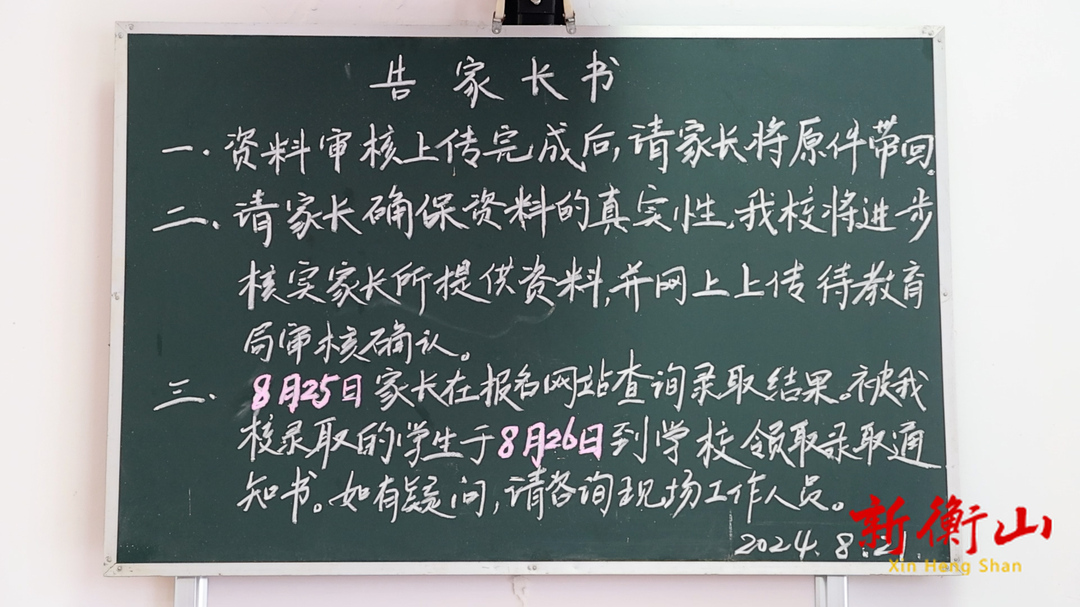 告家长书
一.资料审核上传完成后,请家长将原件带回.
二.请家长确保资料的真实性,我校将进步
核实家长所提供资料,并网上上传待教育
局审核确认。
三.8月25日家长在报名网站查询录取结果。被我
校录取的学生于8月26日到学校领取录取通
知书。如有疑问,请咨询现场工作人员。
2024.8.21.
新衡山
Xin Heng Shan